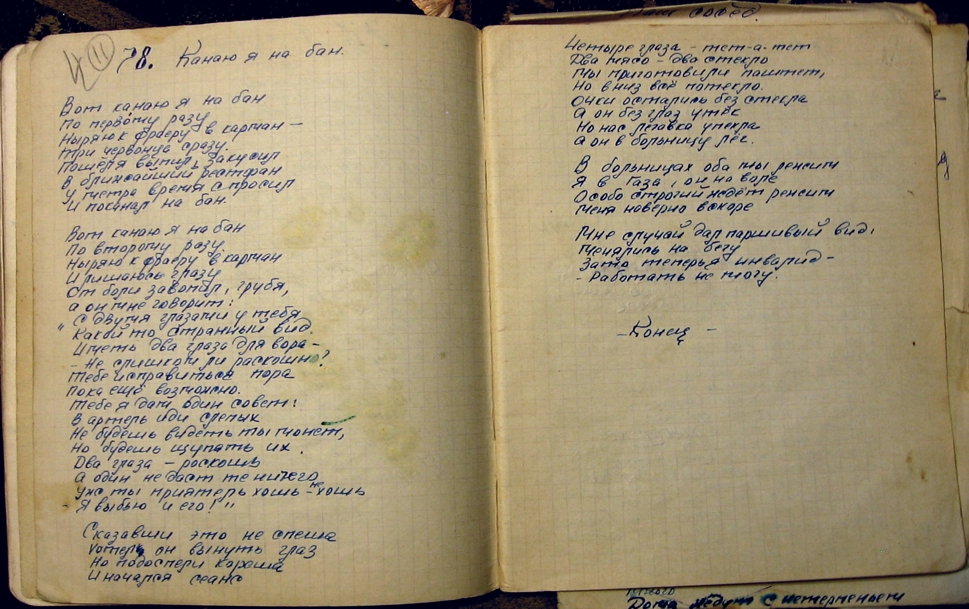 4 11
78. Канаю я на бан.
Вот канаю я на бан
По первому разу
Ныряю к фраеру в карман —
Три червонца сразу.
Пошёл я выпил, закусил
В ближайший ресторан
У метра время спросил
И поканал на бан.
Вот канаю я на бан
По второму разу.
Ныряю к фраеру в карман
И лишаюсь глазу
От боли завопил, грубя,
а он мне говорит:
"С двумя глазами у тебя
Какой то странный вид.
Иметь два глаза для вора –
– Не слишком ли раскошно?
Тебе исправиться пора
Пока ещё возможно.
Тебе я дам один совет:
В артель иди слепых
Не будешь видеть ты монет,
Но будешь щупать их.
Два глаза – роскошь
А один не даст те ничего
Уж ты приятель хошь – не хошь
Я выбью и его!"
Сказавши это не спеша
Хотел он вынуть глаз
Но подоспели кореша
И начался сеанс
Наш сосед.
Четыре глаза – тет-а-тет
Два мясо – два стекло
Мы приготовили паштет,
Но вниз всё потекло.
Очки остались без стекла
А он без глаз утёк
Но нас легавка упекла
А он в больницу лёг.
В больницах оба мы лежим
Я в Газа, он на воле
Особо строгий ждёт режим
Меня наверно вскоре
Мне случай дал паршивый вид,
Менялись на бегу
Зато теперь я инвалид –
– Работать не могу.
– Конец –
много
Дома ждут с нетерпеньем